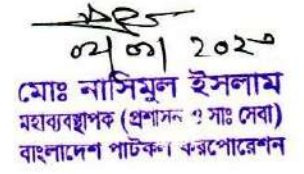 ০২/০১/২০২৩
মোঃ নাসিমুল ইসলাম
মহাব্যবস্থাপক (প্রশাসন ও সাঃ সেবা)
বাংলাদেশ পাটকল করপোরেশন